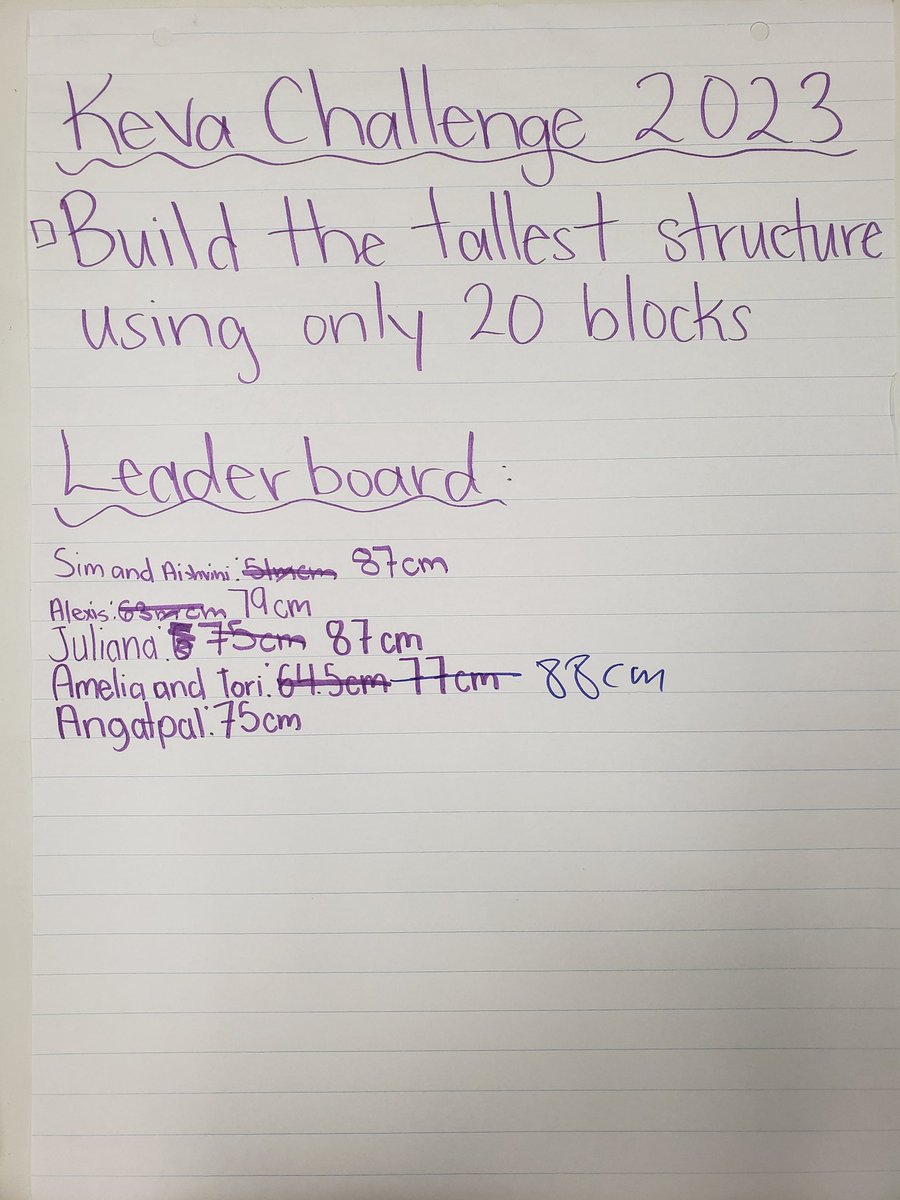 Keva Challenge 2023
Build the tallest structure
using only 20 blocks
Leaderboard:
Sim and Aishvini: 87cm
Alexis: 79cm
Juliana: 75cm 87cm
Amelia and Tori: 64.5cm 77cm 88cm
Angatpal: 75cm